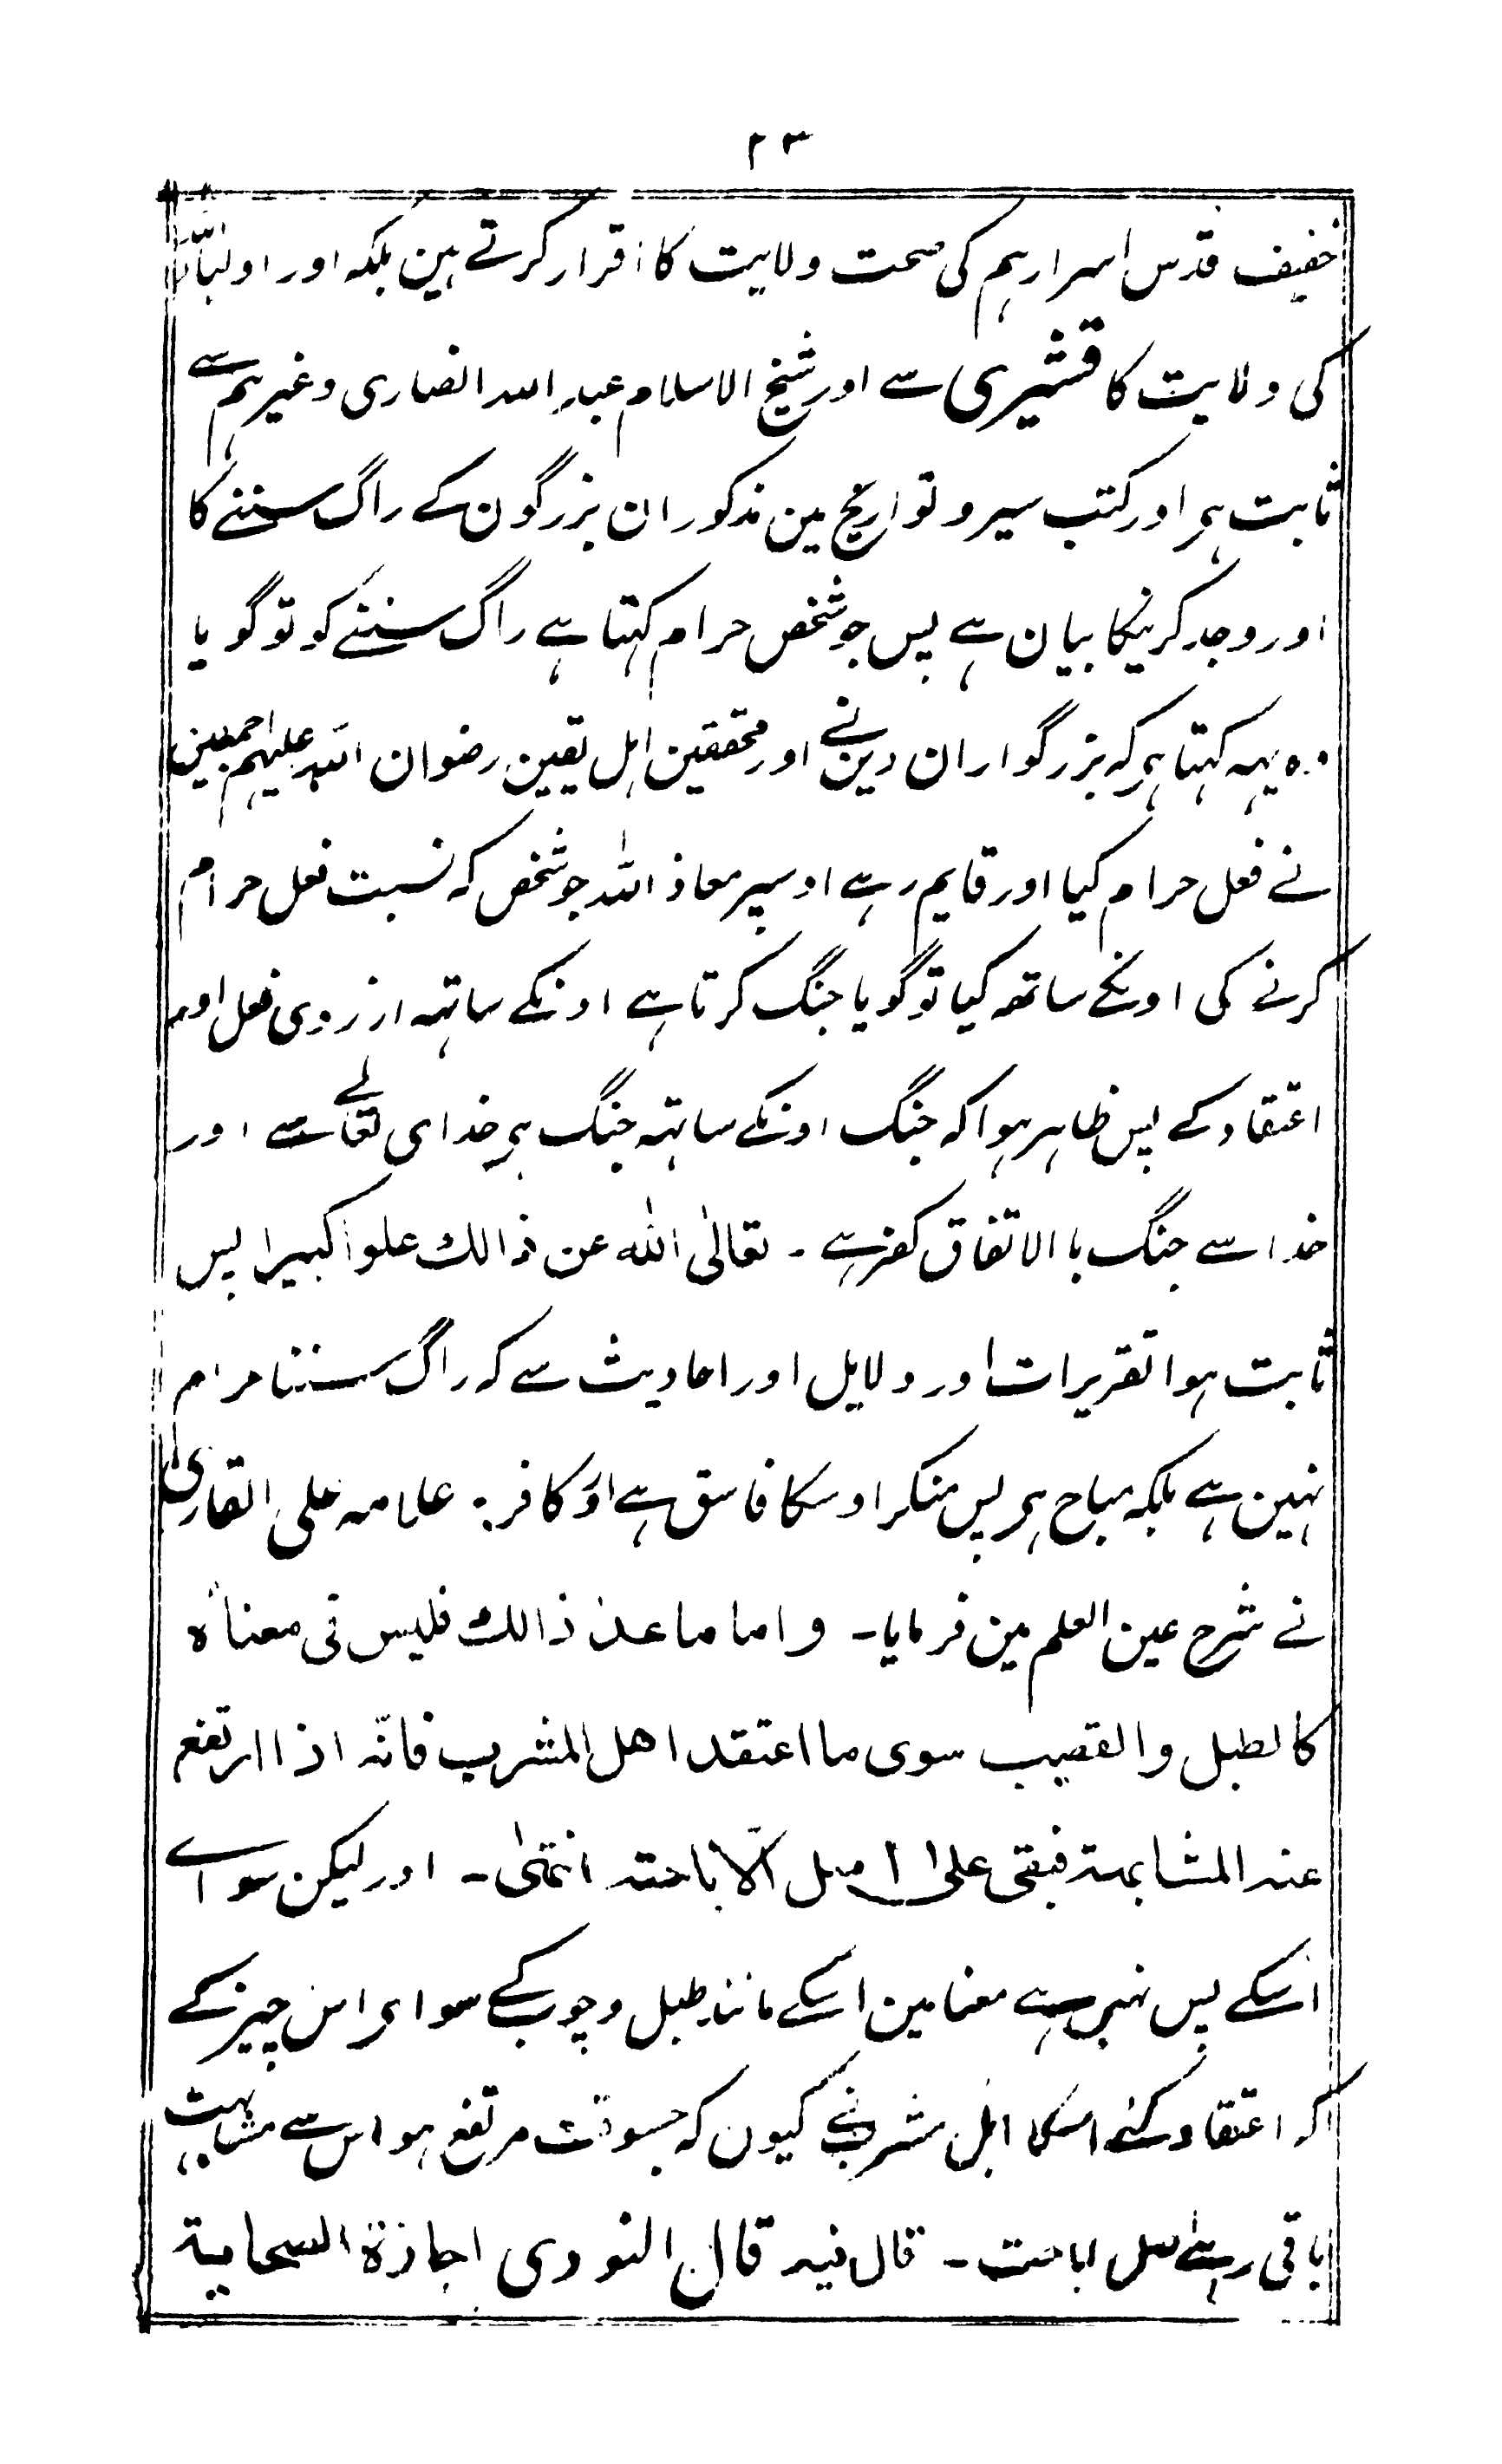 ۲۳
خفیف قدس اسرارہم کی صحت ولایت کا اقرار کرتے ہین بلکہ اور اولیا
کی ولایت کا قشیری سے اور شیخ الاسلام عبد اللہ انصاری وغیرہم سے
ثابت ہر اور کتب سیر و تواریخ مین مذکور ان بزرگون کے راگ سننے کا
اور وجد کرنیکا بیان ہے پس جو شخص حرام کہتا ہے راگ سننے کو تو گویا
وہ یہہ کہتا ہر کہ بزرگواران دین نے اور محققین اہل یقین رضوان اللہ علیہم اجمعین
نے فعل حرام کیا اور قایم رہے اوسپر معاذ اللہ جو شخص کہ نسبت فعل حرام
کرنے کی اونکے ساتھ کیا تو گویا جنگ کرتا ہے اونکے ساتہہ از روی فعل اور
اعتقاد کے پس ظاہر ہوا کہ جنگ اونکے ساتہہ جنگ ہر خدای تعالے سے اور
خدا سے جنگ باالاتفاق کفر ہے ۔ تعالیٰ اللہ عن ذالك علوا کبیرا پس
ثابت ہوا تقریرات اور دلایل اور احادیث سے کہ راگ سننا حرام
نہین ہے بلکہ مباح ہر پس منکر اوسکا فاسق ہے اور کافر : علامہ علی القاری
نے شرح عین العلم مین فرمایا ۔ واما ما عدا ذالك فلیس فی معناہ
کالطبل والقصیب سوی ما اعتقد اهل المشرب فانّہ اذا ارتفع
عنہ المشابہۃ فبقی علی اصل الاباحتہ انتہیٰ ۔ اور لیکن سواے
اسکے پس نہین ہے معنا مین اسکے مانند طبل و چوب کے سوای اس چیز کے
کہ اعتقاد کئے اسکا اہل مشرب نے کیون کہ جسوقت مرتفع ہو اس سے مشابہت
باقی رہے اصل اباحت ۔ قال فیہ قال النووی اجازۃ الصحابۃ